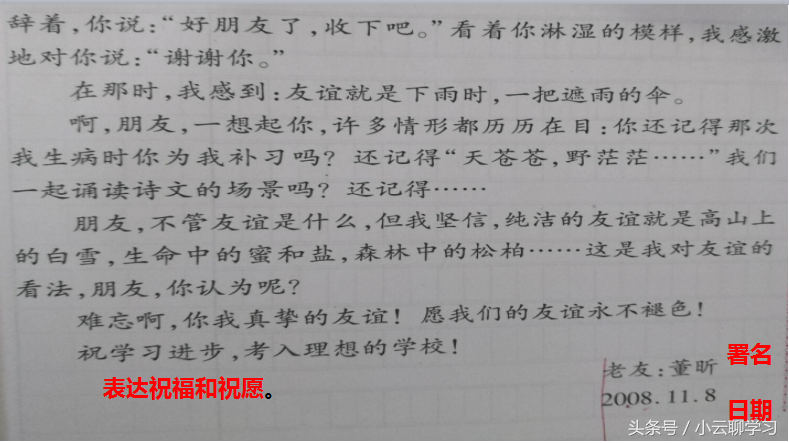 辞着,你说:“好朋友了,收下吧。”看着你淋湿的模样,我感激
地对你说:“谢谢你。”
在那时,我感到:友谊就是下雨时,一把遮雨的伞。
啊,朋友,一想起你,许多情形都历历在目:你还记得那次
我生病时你为我补习吗?还记得“天苍苍,野茫茫……”我们
一起诵读诗文的场景吗?还记得……
朋友,不管友谊是什么,但我坚信,纯洁的友谊就是高山上
的白雪,生命中的蜜和盐,森林中的松柏……这是我对友谊的
看法,朋友,你认为呢?
难忘啊,你我真挚的友谊!愿我们的友谊永不褪色!
祝学习进步,考入理想的学校!
署名
老友:董昕
表达祝福和祝愿。
2008.11.8
日期
头条号/小云聊学习